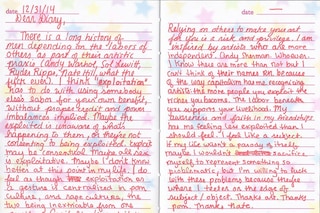 date 12/31/14
Dear Diary,
There is a long history of
men depending on the labors of
others as part of their artistic
praxis (Andy Warhol, Sol Lewitt,
Rudes Pippi, Nate Hill, what the
fuck ever). I think "exploitation"
has to do with using somebody
else's labor for your own benefit,
without proper credit and power
imbalances implied. Maybe the
exploited is unaware of what's
happening to them, or they're not
consenting to being exploited.
may be consensual. Maybe all work
is exploitative. Maybe I don't know
notes at this point in my life. I do
feel as though exploitation as
a gesture is centralized in porn,
culture, and rape culture, the
two being inextricable from one
date
Relying on others to make your art
for you is a risk and privilege. I am
inspired by artists who are more
independent. Cindy Sherman. Whoever.
I know there are more than that but I
can't think of their names RN because
of the way capitalism has me recognizing
artists: the more people you exploit the
richer you become. The labor beneath
you supports your livelihood. My
awareness and faith in my friendships
has me feeling less exploited than I
should feel. I feel like a subject.
If my life wasn't a parody of itself,
maybe I wouldn't sacrifice
myself to represent something so
problematic, but I'm willing to fuck
with these problems because there's
where I teeter on the edge of
subject / object. Thanks art. Thanks
porn. Thanks Nate.